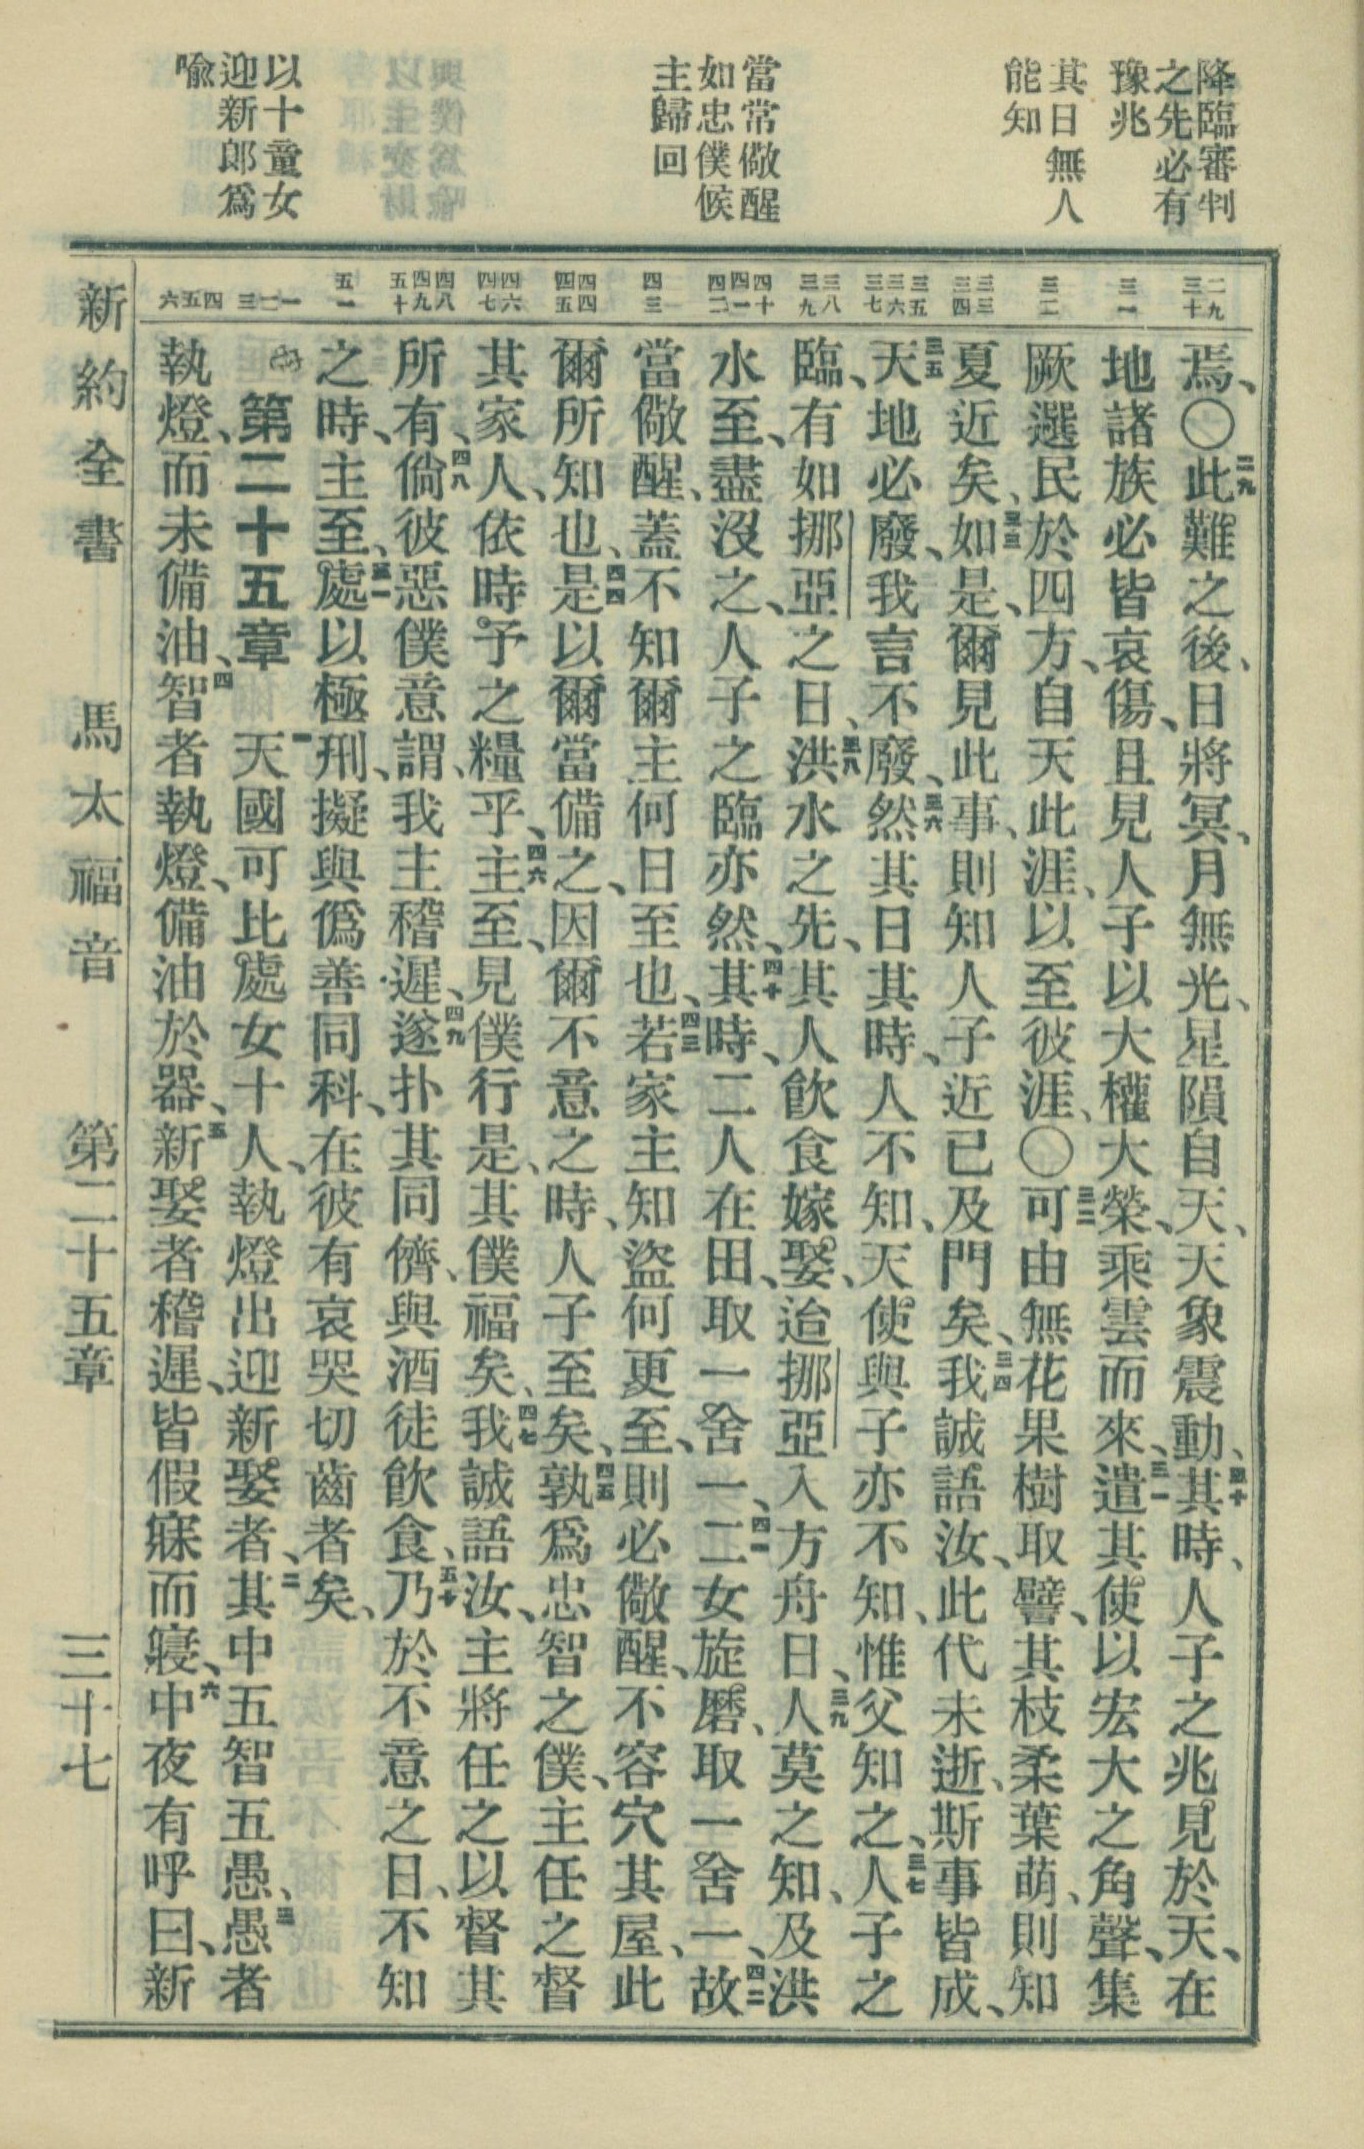 降臨審判
之先必有
豫兆
其日無人
能知
當常儆醒
如忠僕候
主歸回
以十童女
迎新郎爲
喩
二九 三十
三一
三二
三三 三四
三五 三六 三七
三八 三九
四十 四一 四二
四三
四四 四五
四六 四七
四八 四九 五十
五一
一 二 三
四 五 六
焉、〇二九此難之後、日將冥、月無光、星隕自天、天象震動、三十其時、人子之兆見於天、在
地諸族必皆哀傷、且見人子以大權大榮、乘雲而來、三一遣其使以宏大之角聲、集
厥選民於四方、自天此涯、以至彼涯、〇三二可由無花果樹取譬、其枝柔葉萌、則知
夏近矣、三三如是、爾見此事、則知人子近已及門矣、三四我誠語汝、此代未逝、斯事皆成、
三五天地必廢、我言不廢、三六然其日其時、人不知、天使與子亦不知、惟父知之、三七人子之
臨、有如挪亞之日、三八洪水之先、其人飮食嫁娶、迨挪亞入方舟日、三九人莫之知、及洪
水至、盡沒之、人子之臨亦然、四十其時、二人在田、取一舍一、四一二女旋磨、取一舍一、四二故
當儆醒、蓋不知爾主何日至也、四三若家主知盜何更至、則必儆醒、不容穴其屋、此
爾所知也、四四是以爾當備之、因爾不意之時、人子至矣、四五孰爲忠智之僕、主任之督
其家人、依時予之糧乎、四六主至、見僕行是、其僕福矣、四七我誠語汝、主將任之以督其
所有、四八倘彼惡僕意謂、我主稽遲、四九遂扑其同儕、與酒徒飮食、五十乃於不意之日、不知
之時、主至、五一處以極刑、擬與僞善同科、在彼有哀哭切齒者矣、
第二十五章 一天國可比處女十人、執燈出迎新娶者、二其中五智五愚、三愚者
執燈、而未備油、四智者執燈、備油於器、五新娶者稽遲、皆假寐而寢、六中夜有呼曰、新
新約全書 馬太福音 第二十五章 三十七